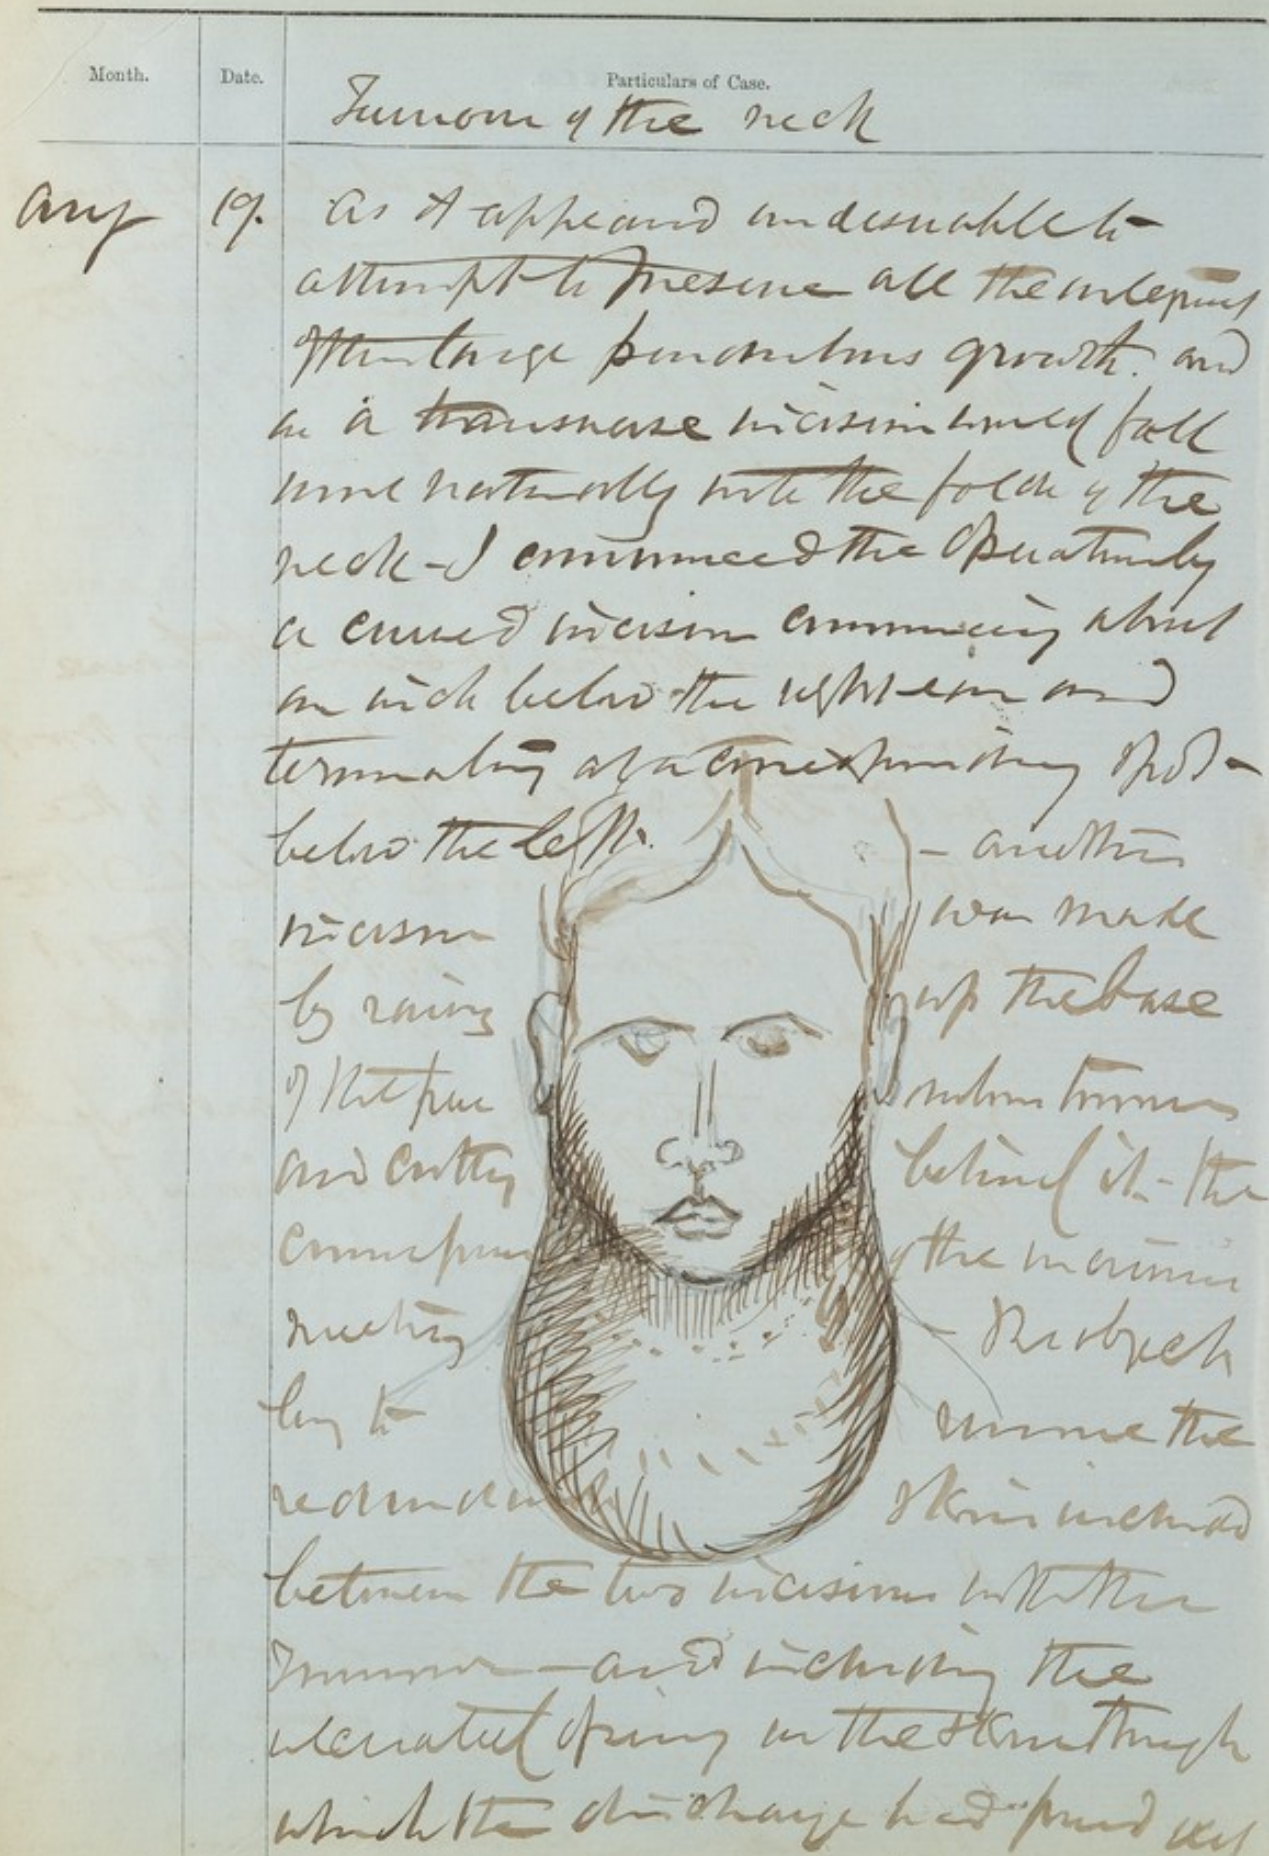 Month. Date. Particulars of Case.
Tumour of the neck
Aug 19. As it appeared undesirable to
attempt to preserve all the integument
of this large pendulous growth. and
as a transverse incision would fall
more naturally into the folds of the
neck - I commenced the operation by
a curved incision commencing about
an inch below the right ear and
terminating at a corresponding spot
below the left. - another
incision was made
by raising up the base
of the pendulous tumour
and cutting behind it - the
of the incisions
meeting - The object
being to remove the
redundant skin included
between the two incisions with the
Tumour - and including the
ulcerated opening in the skin through
which the discharge had poured out